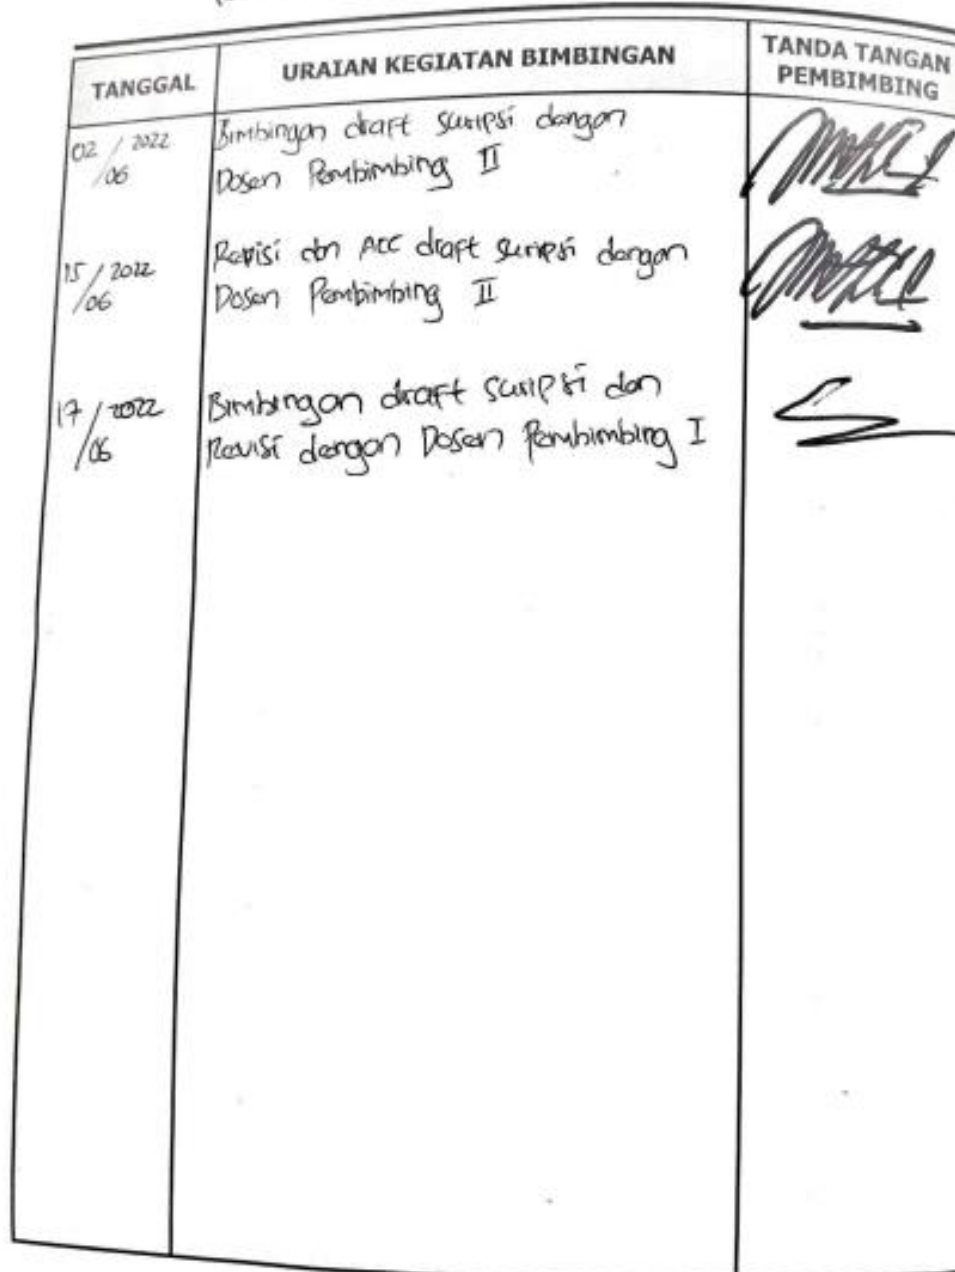 TANGGAL
URAIAN KEGIATAN BIMBINGAN
TANDA TANGAN
PEMBIMBING
02/06 2022
Bimbingan draft skripsi dengan
Dosen Pembimbing II
15/06 2022
Revisi dan ACC draft skripsi dengan
Dosen Pembimbing II
17/06 2022
Bimbingan draft skripsi dan
Revisi dengan Dosen Pembimbing I